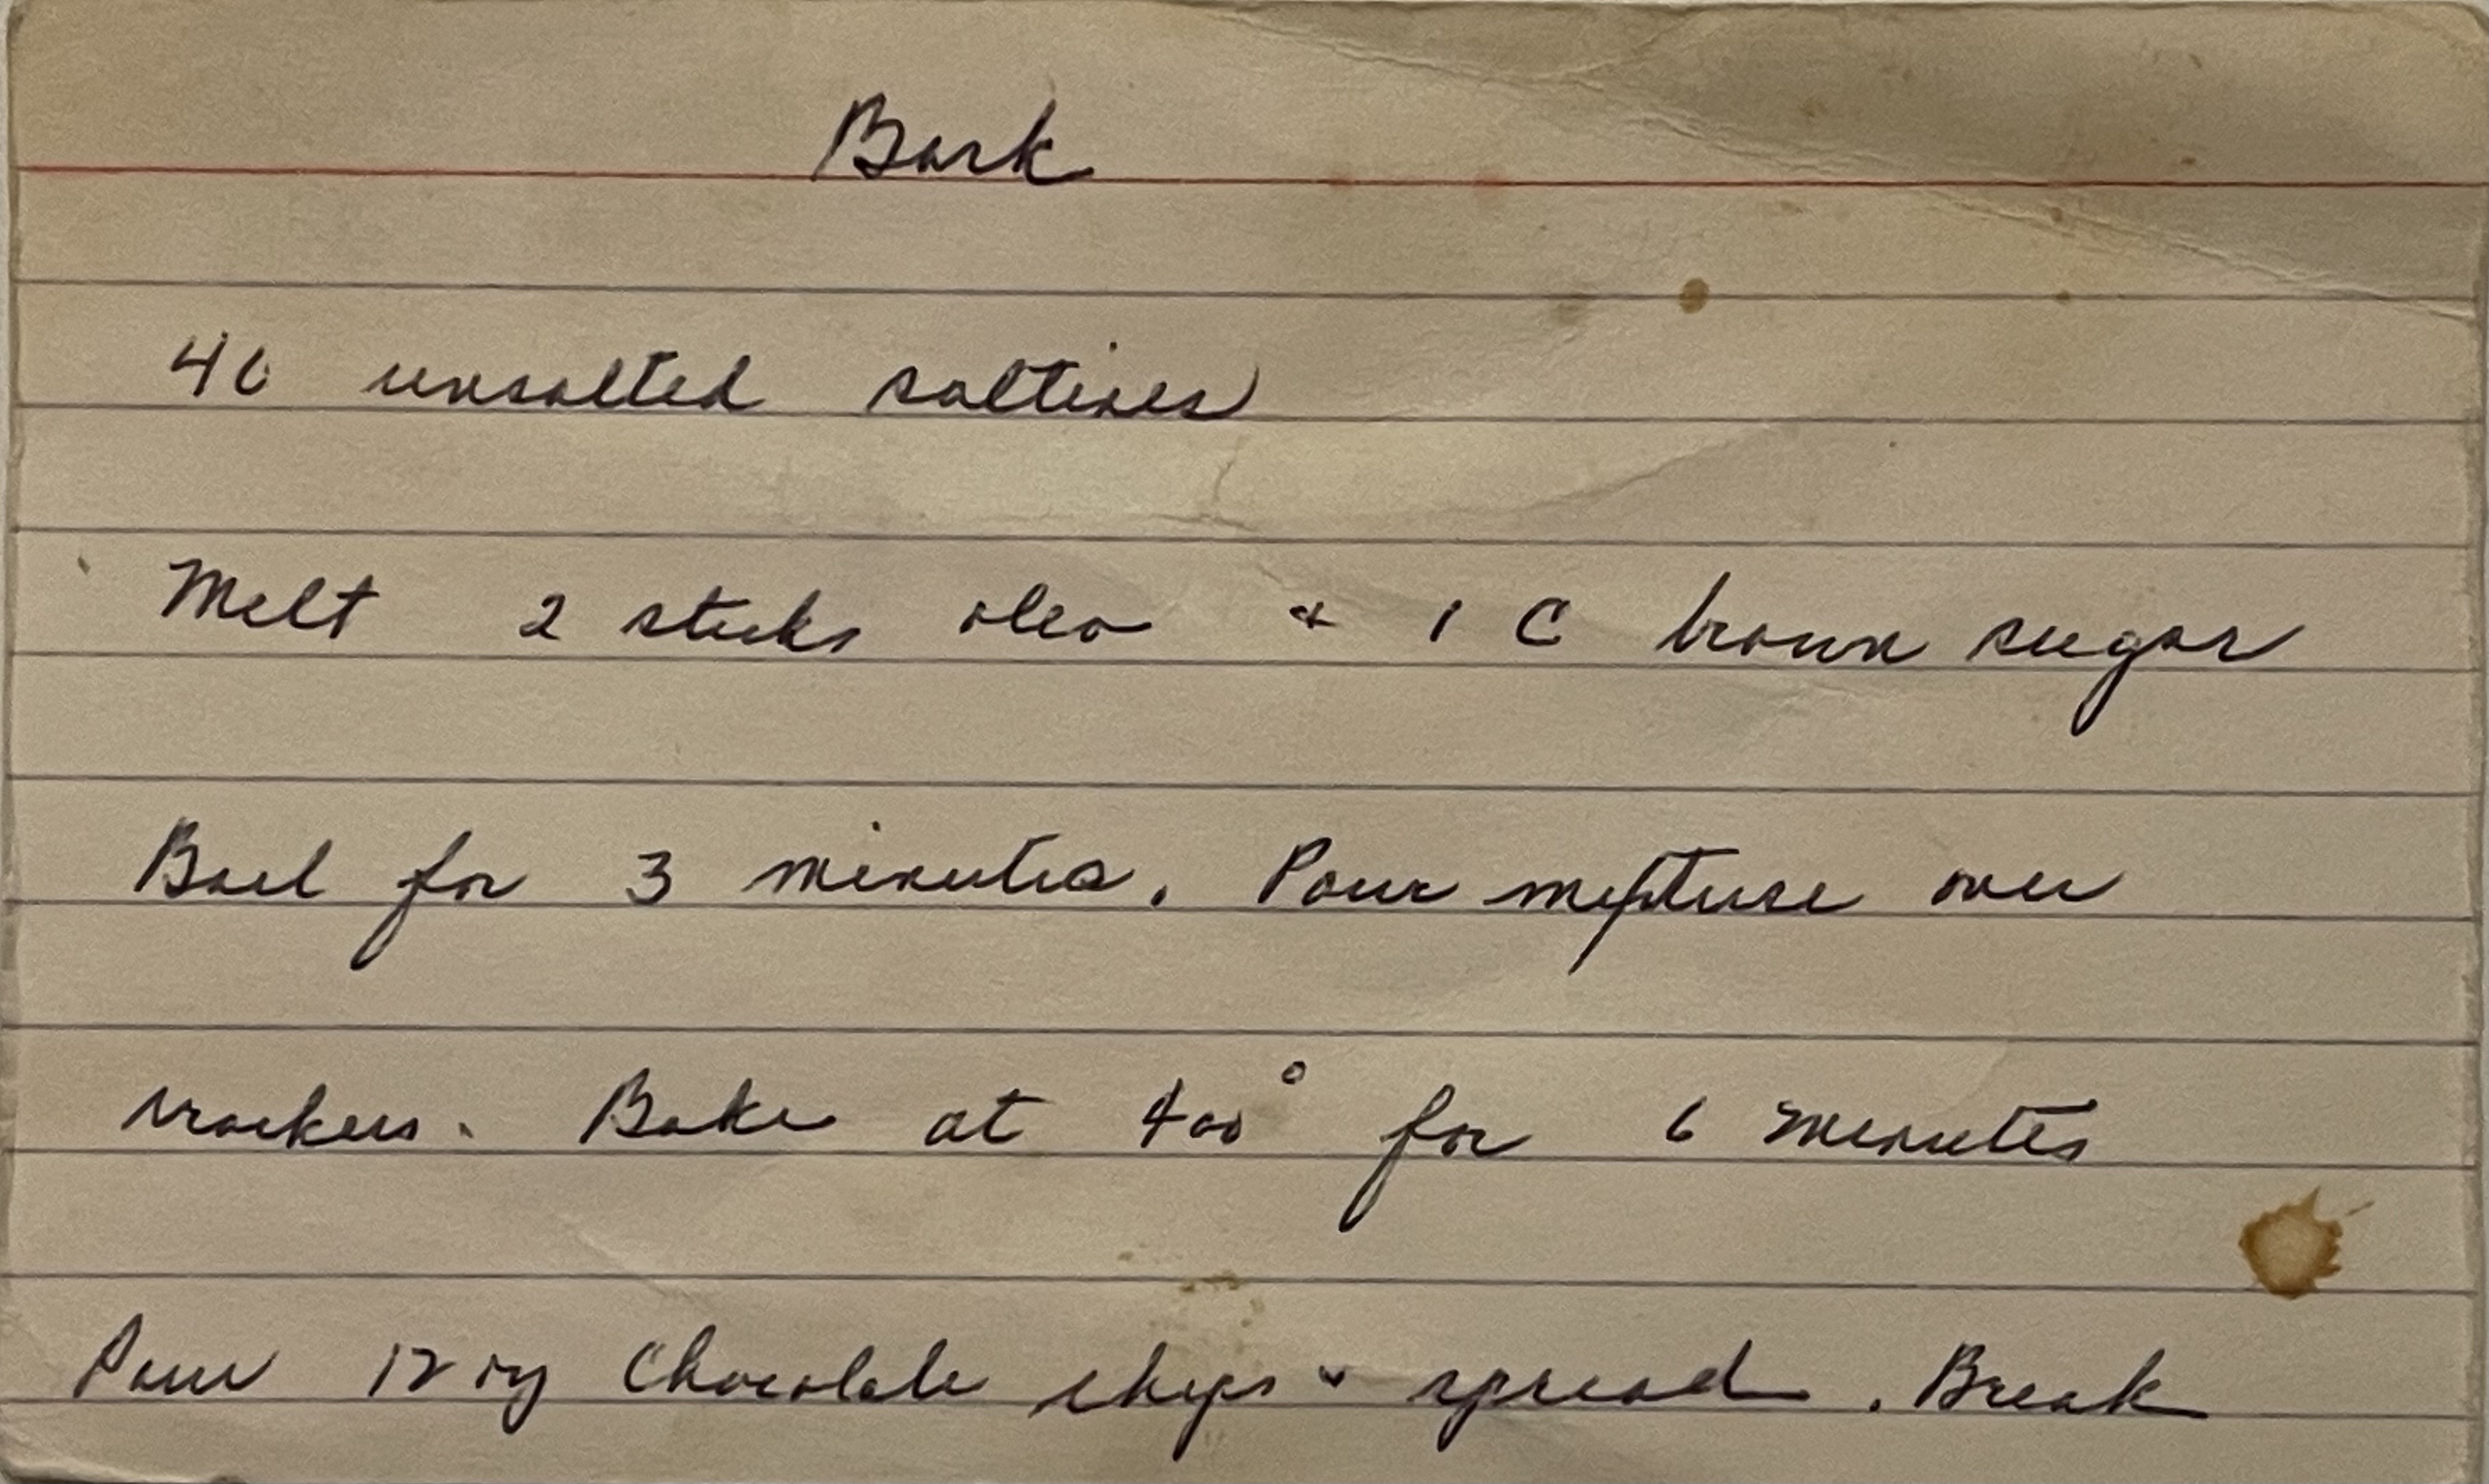 Bark
40 unsalted saltines
Melt 2 sticks oleo + 1 C brown sugar
Boil for 3 minutes. Pour mixture over
crackers. Bake at 400° for 6 minutes
Pour 12 oz Chocolate chips + spread. Break